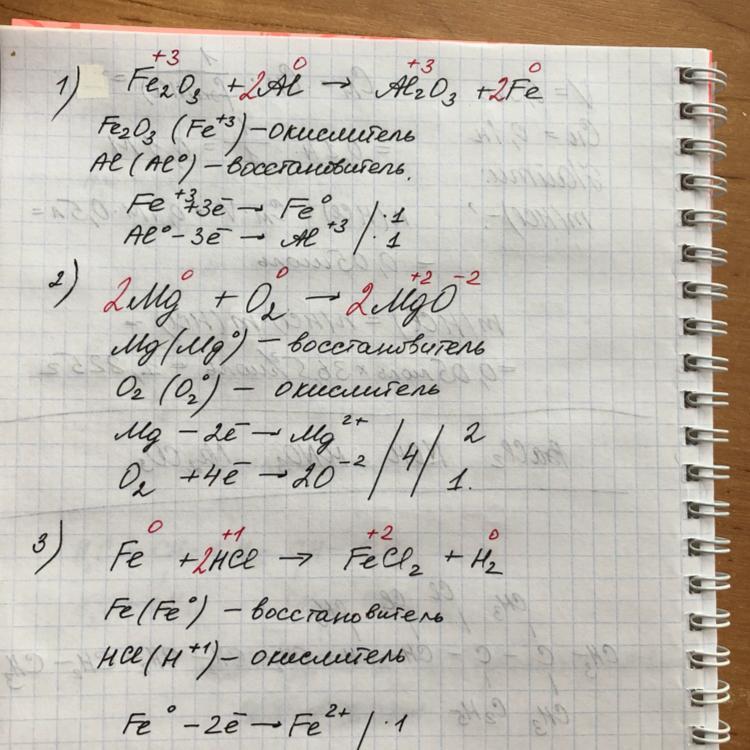 1) Fe₂⁺³O₃ + 2Al⁰ → Al₂⁺³O₃ + 2Fe⁰
Fe₂O₃ (Fe⁺³) – окислитель
Al (Al⁰) – восстановитель.
Fe⁺³ +3ē → Fe⁰
Al⁰ – 3ē → Al⁺³ / ·1 ·1
2) 2Mg⁰ + O₂⁰ → 2Mg⁺²O⁻²
Mg (Mg⁰) – восстановитель
O₂ (O₂⁰) – окислитель
Mg – 2ē → Mg²⁺ / 4 / 2
O₂ +4ē → 2O⁻² / 1.
3) Fe⁰ + 2H⁺¹Cl → Fe⁺²Cl₂ + H₂⁰
Fe (Fe⁰) – восстановитель
HCl (H⁺¹) – окислитель
Fe⁰ – 2ē → Fe²⁺ / ·1